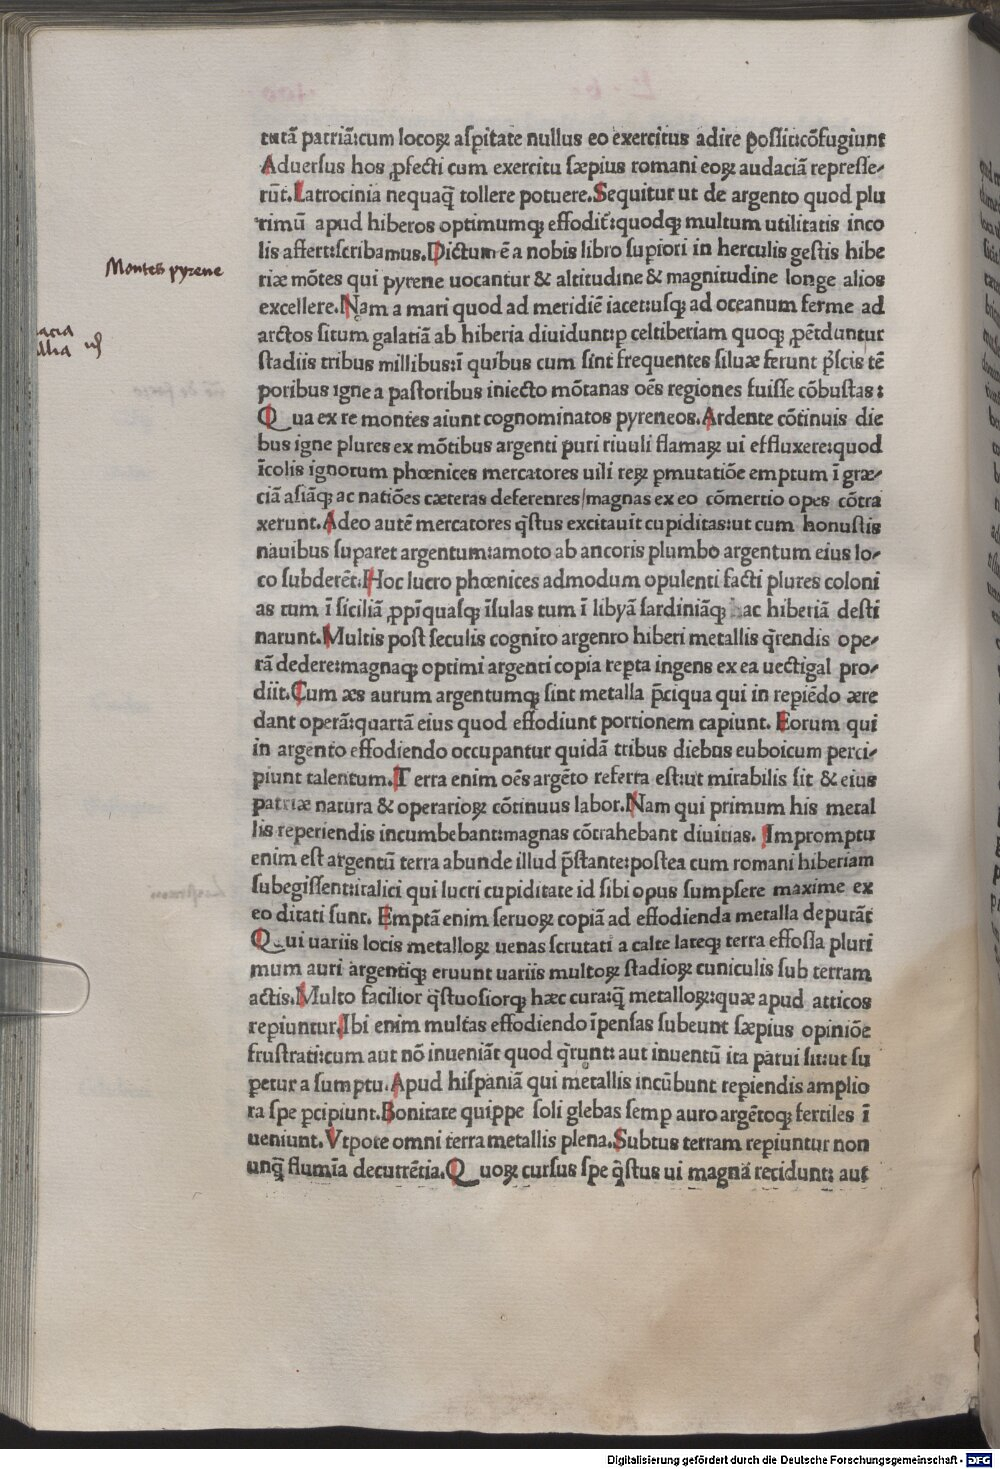 tutā patriā:cum locoꝝ aſpitate nullus eo exercitus adire poſſit:cōfugiunt
Aduerſus hos ꝓfecti cum exercitu ſæpius romani eoꝝ audaciā repreſſe⸗
rūt.Latrocinia nequaq̄ tollere potuere.Sequitur ut de argento quod plu
rimū apud hiberos optimumq; effodit̄:quodq; multum utilitatis inco
lis affert:ſcribamus.Dictum ē a nobis libro ſupiori in herculis geſtis hibe
riæ mōtes qui pyrene uocantur & altitudine & magnitudine longe alios
excellere.Nam a mari quod ad meridiē iacet:uſq; ad oceanum ferme ad
arctos ſitum galatiā ab hiberia diuidunt:ꝑ celtiberiam quoq; ꝓtēduntur
ſtadiis tribus millibus:ī quibus cum ſint frequentes ſiluæ ferunt p̄ſcis tē
poribus igne a paſtoribus iniecto mōtanas oēs regiones fuiſſe cōbuſtas:
Qua ex re montes aiunt cognominatos pyreneos.Ardente cōtinuis die
bus igne plures ex mōtibus argenti puri riuuli flamaꝝ ui effluxere:quod
īcolis ignotum phœnices mercatores uili reꝝ ꝑmutatiōe emptum ī græ⸗
ciā aſiāq; ac natiōes cæteras deferentes/magnas ex eo cōmertio opes cōtra
xerunt.Adeo autē mercatores q̄ſtus excitauit cupiditas:ut cum honuſtis
nauibus ſuꝑaret argentum:amoto ab ancoris plumbo argentum eius lo⸗
co ſubderēt.Hoc lucro phœnices admodum opulenti facti plures coloni
as tum ī ſiciliā ꝓpīquaſq; īſulas tum ī libyā ſardiniāq; hac hiberiā deſti
narunt.Multis poſt ſeculis cognito argento hiberi metallis q̄rendis ope⸗
rā dedere:magnaq; optimi argenti copia reꝑta ingens ex ea uectigal pro⸗
diit.Cum æs aurum argentumq; ſint metalla p̄ciqua qui in repiēdo ære
dant operā:quartā eius quod effodiunt portionem capiunt. Eorum qui
in argento effodiendo occupantur quidā tribus diebus euboicum perci⸗
piunt talentum.Terra enim oēs argēto referta eſt:ut mirabilis ſit & eius
patriæ natura & operarioꝝ cōtinuus labor.Nam qui primum his metal
lis reperiendis incumbebant:magnas cōtrahebant diuitias. Impromptu
enim eſt argentū terra abunde illud p̄ſtante:poſtea cum romani hiberiam
ſubegiſſent:italici qui lucri cupiditate id ſibi opus ſumpſere maxime ex
eo ditati ſunt. Emptā enim ſeruoꝝ copiā ad effodienda metalla deputāt
Qui uariis locis metalloꝝ uenas ſcrutati a calte lateq; terra effoſſa pluri
mum auri argentiq; eruunt uariis multoꝝ ſtadioꝝ cuniculis ſub terram
actis.Multo facilior q̄ſtuoſiorq; hæc cura:q̄ metalloꝝ:quæ apud atticos
repiuntur.Ibi enim multas effodiendo īpenſas ſubeunt ſæpius opiniōe
fruſtrati:cum aut nō inueniāt quod q̄runt: aut inuentū ita parui ſit:ut ſu
petur a ſumptu.Apud hiſpaniā qui metallis incūbunt repiendis amplio
ra ſpe ꝑcipiunt.Bonitate quippe ſoli glebas ſemp auro argētoq; fertiles ī
ueniunt.Vtpote omni terra metallis plena.Subtus terram repiuntur non
unq̄ flumīa decurrētia.Quoꝝ curſus ſpe q̄ſtus ui magnā recidunt: aut
Montes pyrene
Digitalisierung gefördert durch die Deutsche Forschungsgemeinschaft - DFG